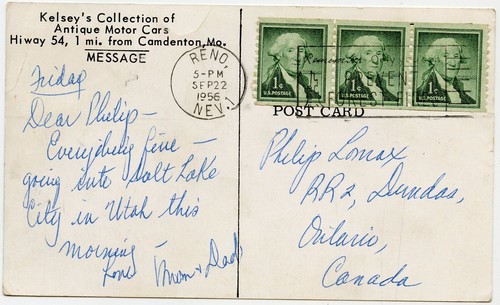 Kelsey's Collection of
Antique Motor Cars
Hiway 54, 1 mi. from Camdenton, Mo.
MESSAGE
Friday
Dear Philip —
Everything fine —
going into Salt Lake
City in Utah this
morning —
Love Mom + Dad
RENO,
5-PM
SEP 22
1956
NEV. 1
1¢ U.S. POSTAGE
1¢ U.S. POSTAGE
1¢ U.S. POSTAGE
POST CARD
Philip Lomax
RR2, Dundas,
Ontario,
Canada